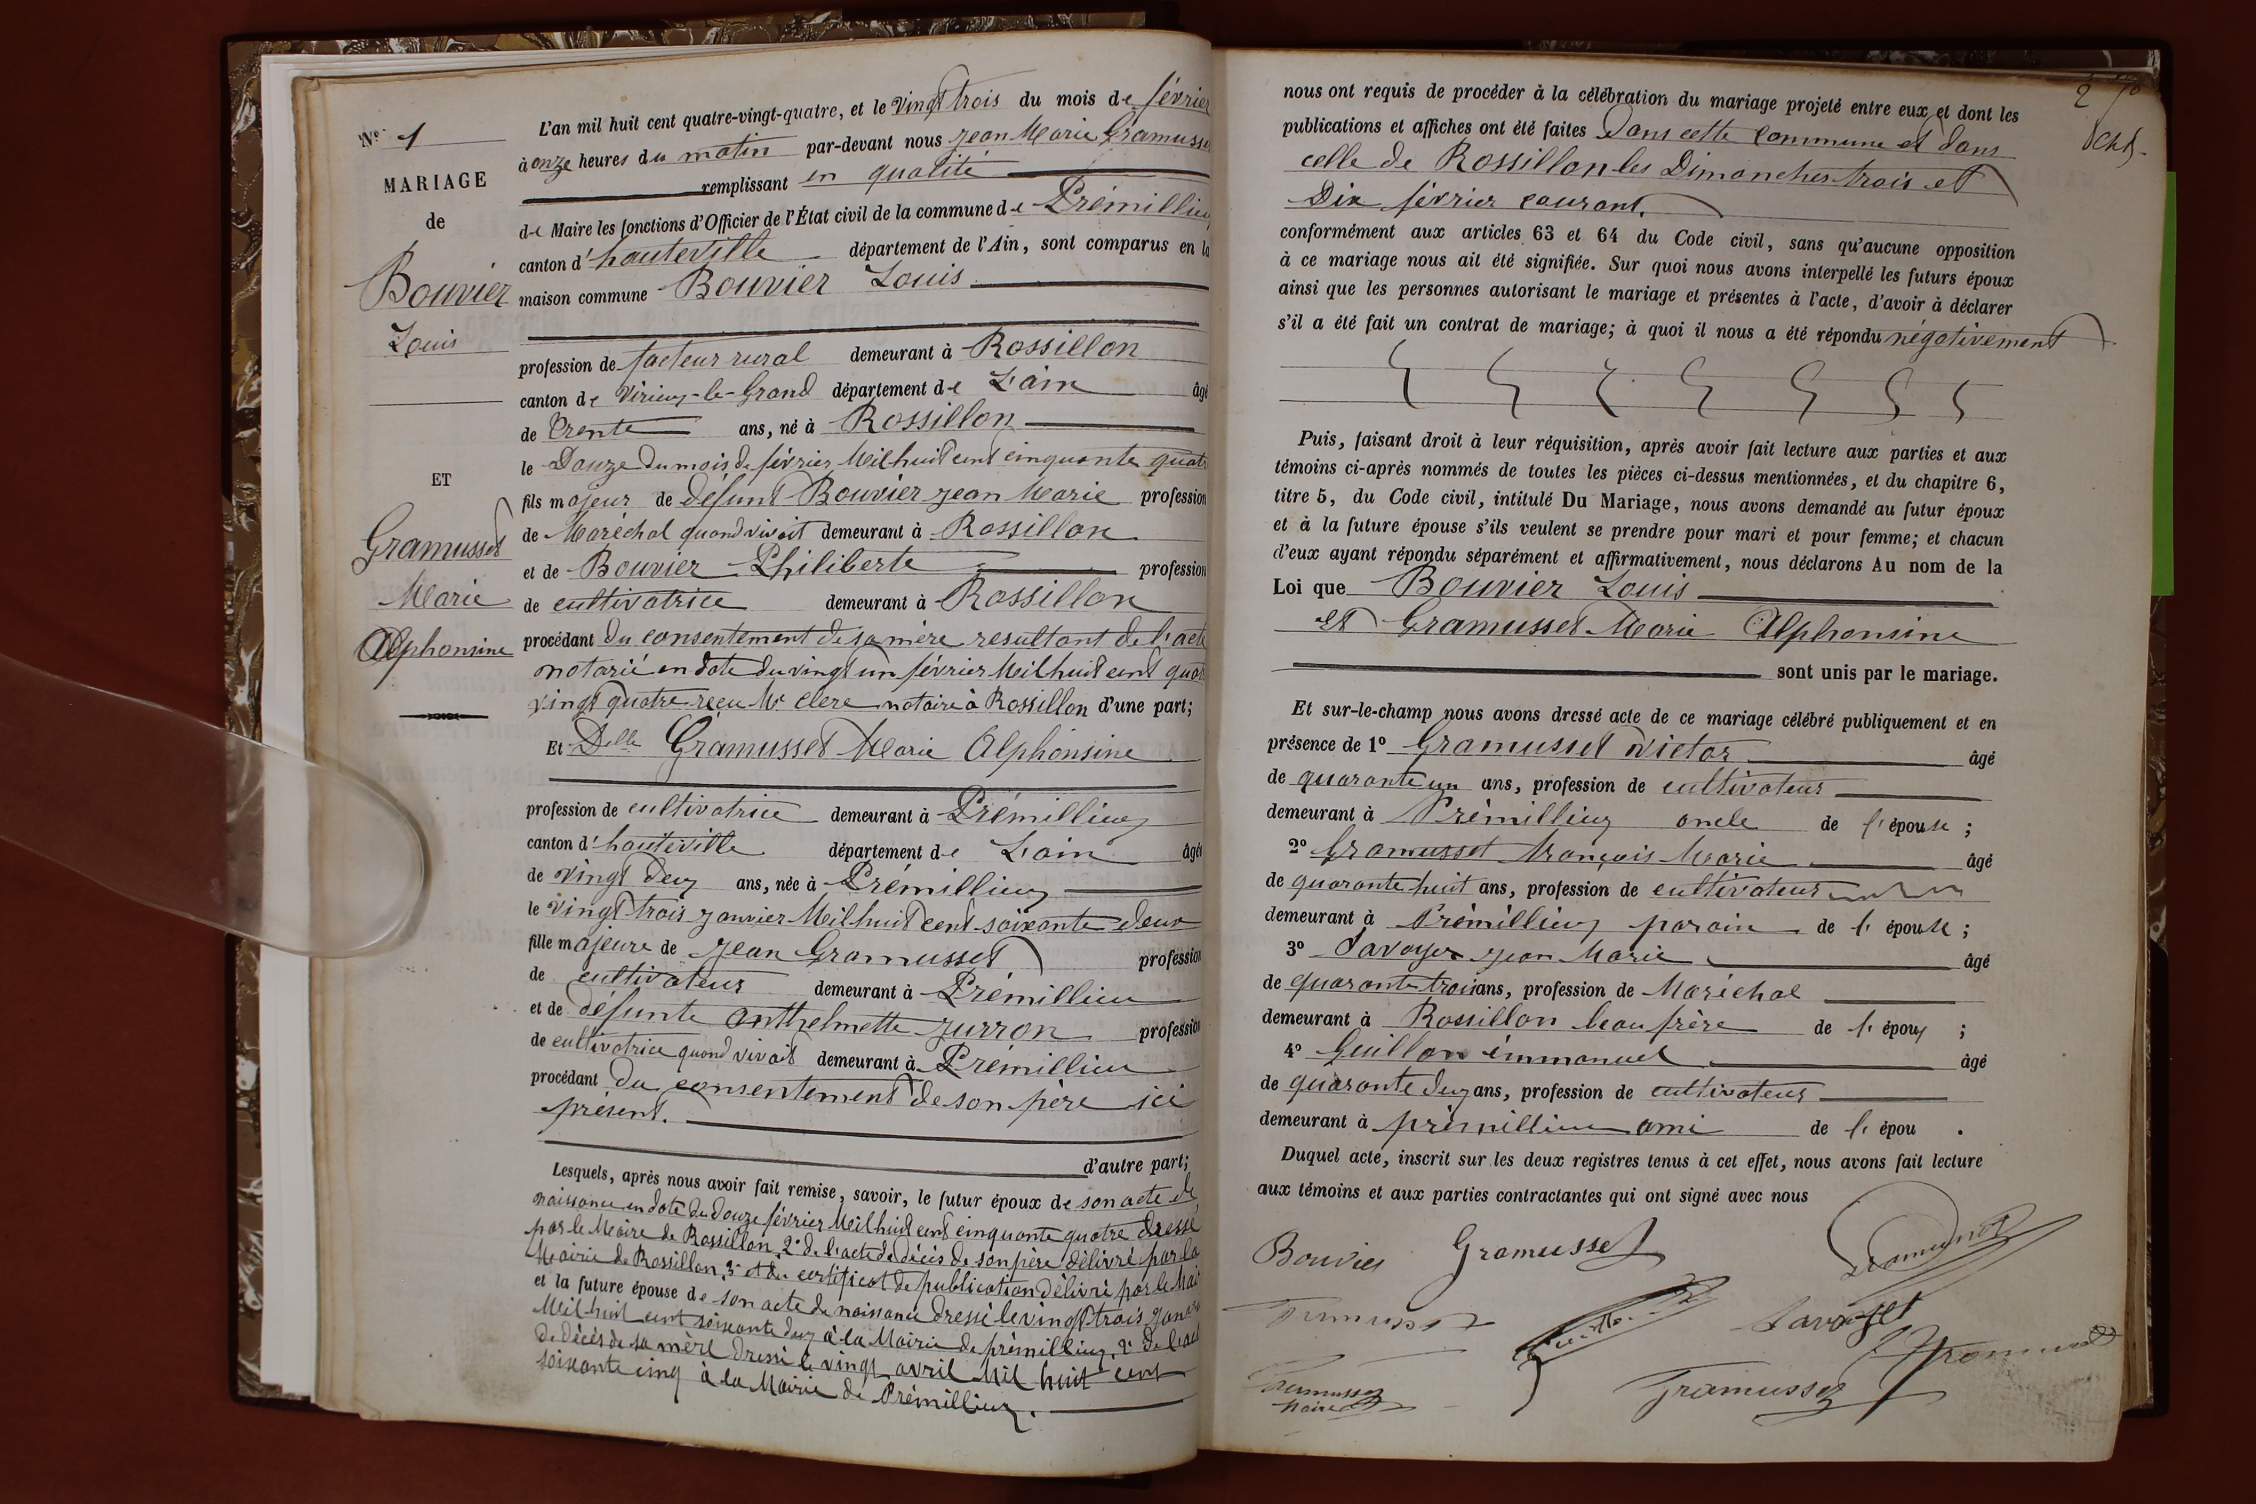 N° 1
MARIAGE
de
Bouvier
Louis
ET
Gramusset
Marie
Alphonsine
L'an mil huit cent quatre-vingt-quatre, et le vingt trois du mois de février
à onze heures du matin par-devant nous Jean Marie Gramusset
remplissant en qualité
de Maire les fonctions d'Officier de l'État civil de la commune de Prémillieu
canton d'hauteville département de l'Ain, sont comparus en la
maison commune Bouvier Louis
profession de facteur rural demeurant à Rossillon
canton de Virieux-le-Grand département de L'ain âgé
de Trente ans, né à Rossillon
le Douze du mois de février Mil huit cent cinquante quatre
fils majeur de défunt Bouvier Jean Marie profession
de Maréchal quand vivait demeurant à Rossillon
et de Bouvier Philiberte profession
de cultivatrice demeurant à Rossillon
procédant du consentement de sa mère resultant de l'acte
notarié en date du vingt un février Mil huit cent quatre
vingt quatre reçu Mr Clerc notaire à Rossillon d'une part;
Et Delle Gramusset Marie Alphonsine
profession de cultivatrice demeurant à Prémillieux
canton d'hauteville département de L'ain âgée
de vingt deux ans, née à Prémillieux
le vingt trois janvier Mil huit cent soixante deux
fille majeure de Jean Gramusset profession
de cultivateur demeurant à Prémillieu
et de défunte Anthelmette Jurron profession
de cultivatrice quand vivait demeurant à Prémillieu
procédant du consentement de son père ici
présent.
d'autre part;
Lesquels, après nous avoir fait remise, savoir, le futur époux de son acte de
naissance en date du Douze février Mil huit cent cinquante quatre dressé
par le Maire de Rossillon, 2° de l'acte de décès de son père délivré par la
Mairie de Rossillon, 3° et du certificat de publication délivré par le Maire
et la future épouse de son acte de naissance dressé le vingt trois janvier
Mil huit cent soixante deux à la Mairie de prémillieux, 2° de l'acte
de décès de sa mère dressé le vingt avril Mil huit cent
soixante cinq à la Mairie de Prémillieux.
2
nous ont requis de procéder à la célébration du mariage projeté entre eux et dont les
publications et affiches ont été faites Dans cette Commune et dans
celle de Rossillon les Dimanches trois et
Dix février courant.
conformément aux articles 63 et 64 du Code civil, sans qu'aucune opposition
à ce mariage nous ait été signifiée. Sur quoi nous avons interpellé les futurs époux
ainsi que les personnes autorisant le mariage et présentes à l'acte, d'avoir à déclarer
s'il a été fait un contrat de mariage; à quoi il nous a été répondu négativement
Puis, faisant droit à leur réquisition, après avoir fait lecture aux parties et aux
témoins ci-après nommés de toutes les pièces ci-dessus mentionnées, et du chapitre 6,
titre 5, du Code civil, intitulé Du Mariage, nous avons demandé au futur époux
et à la future épouse s'ils veulent se prendre pour mari et pour femme; et chacun
d'eux ayant répondu séparément et affirmativement, nous déclarons Au nom de la
Loi que Bouvier Louis
et Gramusset Marie Alphonsine
sont unis par le mariage.
Et sur-le-champ nous avons dressé acte de ce mariage célébré publiquement et en
présence de 1° Gramusset Victor âgé
de quarante un ans, profession de cultivateur
demeurant à Prémillieux oncle de l'épouse;
2° Gramusset François Marie âgé
de quarante huit ans, profession de cultivateur
demeurant à Prémillieux parain de l'épouse;
3° Savoyer Jean Marie âgé
de quarante trois ans, profession de Maréchal
demeurant à Rossillon beau frère de l'époux;
4° Guillon émmanuel âgé
de quarante deux ans, profession de cultivateur
demeurant à prémillieu ami de l'épou.
Duquel acte, inscrit sur les deux registres tenus à cet effet, nous avons fait lecture
aux témoins et aux parties contractantes qui ont signé avec nous
Bouvier Gramusset
Gramusset
Savoyet
Gramusset
Gramusset
maire